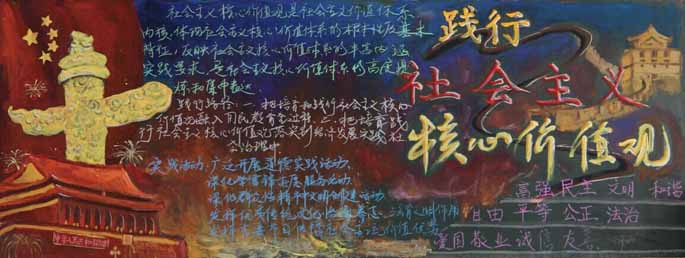 社会主义核心价值观是社会主义价值体系
内核,体现社会主义核心价值体系的根本性质和基本
特征,反映社会主义核心价值体系的丰富内涵
实践要求,是社会主义核心价值体系的高度凝
炼和集中表达
践行路径:一、把培育和践行社会主义核心
价值观融入国民教育全过程 二、把培育践
行社会主义核心价值观落实到经济发展实践和社
会治理中
实践活动:广泛开展道德实践活动
深化学雷锋志愿服务活动
深化群众性精神文明创建活动
发挥优秀传统文化
践行
社会主义
核心价值观
富强 民主 文明 和谐
自由 平等 公正 法治
爱国 敬业 诚信 友善